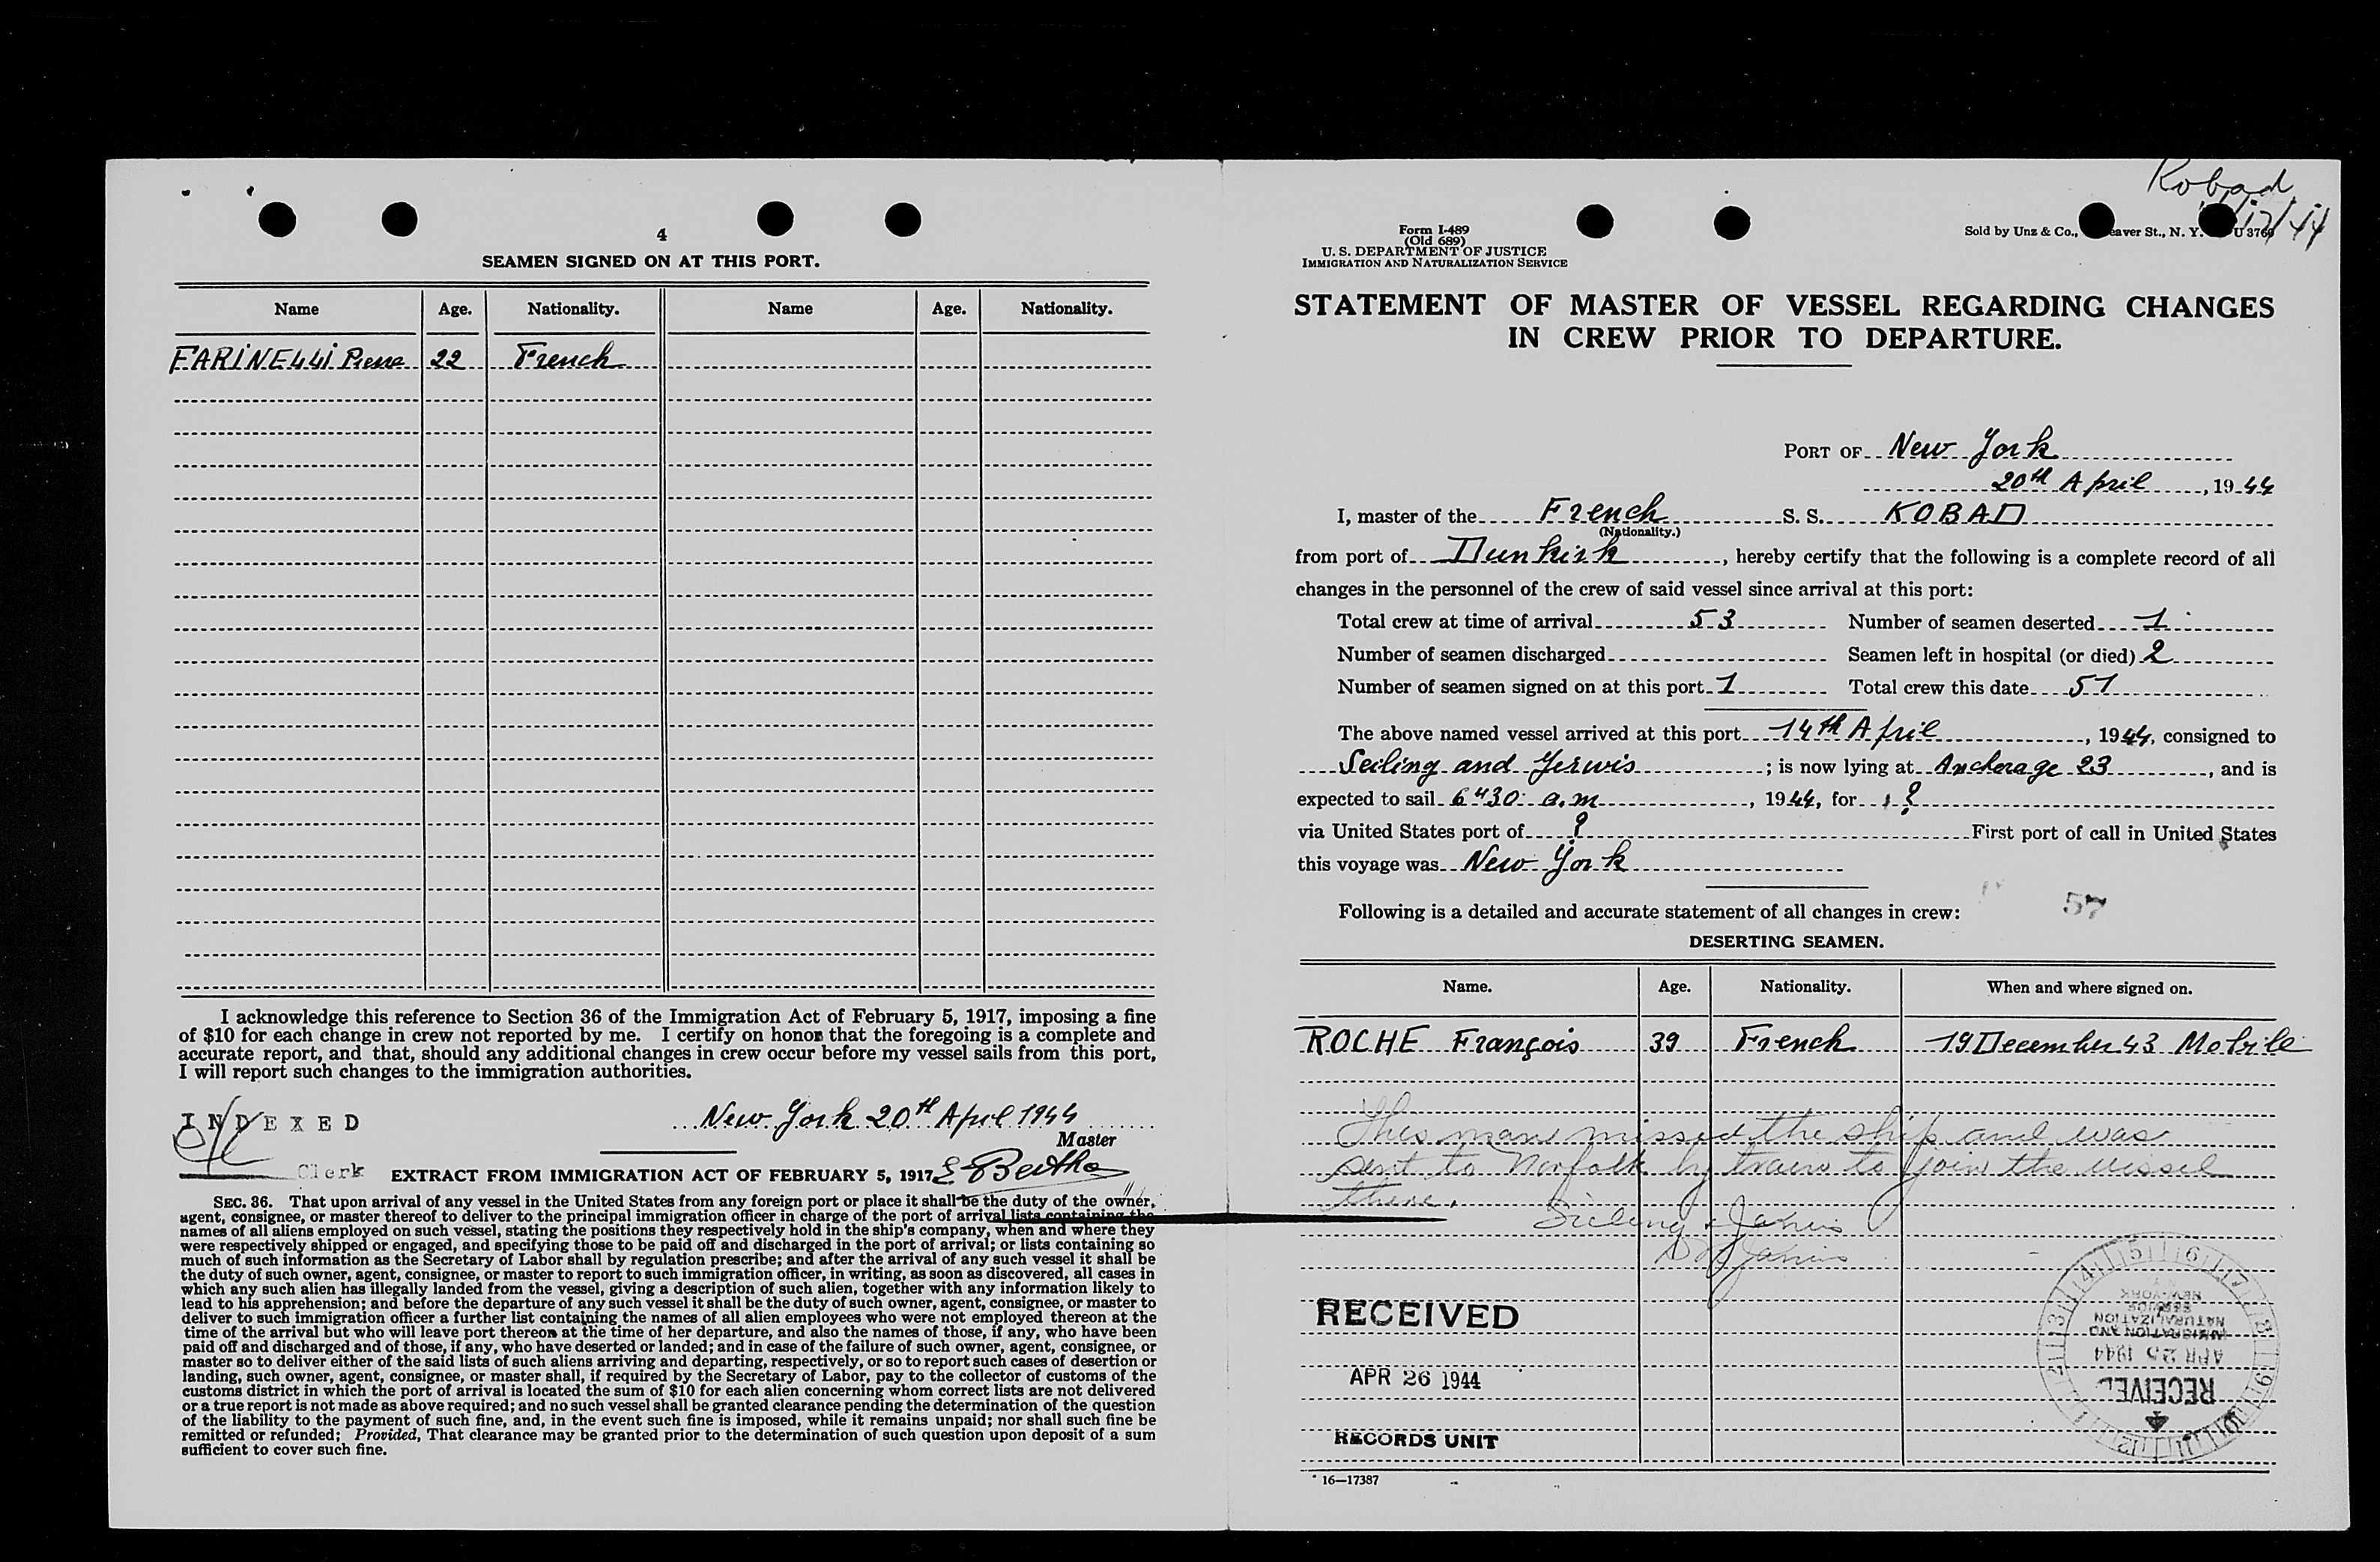 4
SEAMEN SIGNED ON AT THIS PORT.
Name Age. Nationality. Name Age. Nationality.
FARINELLI Pierre 22 French
I acknowledge this reference to Section 36 of the Immigration Act of February 5, 1917, imposing a fine
of $10 for each change in crew not reported by me. I certify on honor that the foregoing is a complete and
accurate report, and that, should any additional changes in crew occur before my vessel sails from this port,
I will report such changes to the immigration authorities.
INDEXED
New York 20th April 1944
Master
Clerk
EXTRACT FROM IMMIGRATION ACT OF FEBRUARY 5, 1917
SEC. 36. That upon arrival of any vessel in the United States from any foreign port or place it shall be the duty of the owner,
agent, consignee, or master thereof to deliver to the principal immigration officer in charge of the port of arrival lists containing the
names of all aliens employed on such vessel, stating the positions they respectively hold in the ship's company, when and where they
were respectively shipped or engaged, and specifying those to be paid off and discharged in the port of arrival; or lists containing so
much of such information as the Secretary of Labor shall by regulation prescribe; and after the arrival of any such vessel it shall be
the duty of such owner, agent, consignee, or master to report to such immigration officer, in writing, as soon as discovered, all cases in
which any such alien has illegally landed from the vessel, giving a description of such alien, together with any information likely to
lead to his apprehension; and before the departure of any such vessel it shall be the duty of such owner, agent, consignee, or master to
deliver to such immigration officer a further list containing the names of all alien employees who were not employed thereon at the
time of the arrival but who will leave port thereon at the time of her departure, and also the names of those, if any, who have been
paid off and discharged and of those, if any, who have deserted or landed; and in case of the failure of such owner, agent, consignee, or
master so to deliver either of the said lists of such aliens arriving and departing, respectively, or so to report such cases of desertion or
landing, such owner, agent, consignee, or master shall, if required by the Secretary of Labor, pay to the collector of customs of the
customs district in which the port of arrival is located the sum of $10 for each alien concerning whom correct lists are not delivered
or a true report is not made as above required; and no such vessel shall be granted clearance pending the determination of the question
of the liability to the payment of such fine, and, in the event such fine is imposed, while it remains unpaid; nor shall such fine be
remitted or refunded; Provided, That clearance may be granted prior to the determination of such question upon deposit of a sum
sufficient to cover such fine.
Kobad
Form I-489
(Old 689)
U. S. DEPARTMENT OF JUSTICE
IMMIGRATION AND NATURALIZATION SERVICE
Sold by Unz & Co., St., N. Y.
STATEMENT OF MASTER OF VESSEL REGARDING CHANGES
IN CREW PRIOR TO DEPARTURE.
PORT OF New York
20th April, 1944
I, master of the French S. S. KOBAD
(Nationality.)
from port of Dunkirk, hereby certify that the following is a complete record of all
changes in the personnel of the crew of said vessel since arrival at this port:
Total crew at time of arrival 53 Number of seamen deserted 1
Number of seamen discharged Seamen left in hospital (or died) 2
Number of seamen signed on at this port 1 Total crew this date 51
The above named vessel arrived at this port 14th April, 1944, consigned to
Seiling and Jerwis; is now lying at Anchorage 23, and is
expected to sail 6 H 30 a.m, 1944, for ?
via United States port of ? First port of call in United States
this voyage was New York
57
Following is a detailed and accurate statement of all changes in crew:
DESERTING SEAMEN.
Name. Age. Nationality. When and where signed on.
ROCHE François 39 French 19 December 43 Mobile
This man missed the ship and was
sent to Norfolk by train to join the vessel
there.
RECEIVED
APR 26 1944
RECORDS UNIT
IMMIGRATION AND
NATURALIZATION
SERVICE
NEW YORK
APR 25 1944
RECEIVED
16—17387